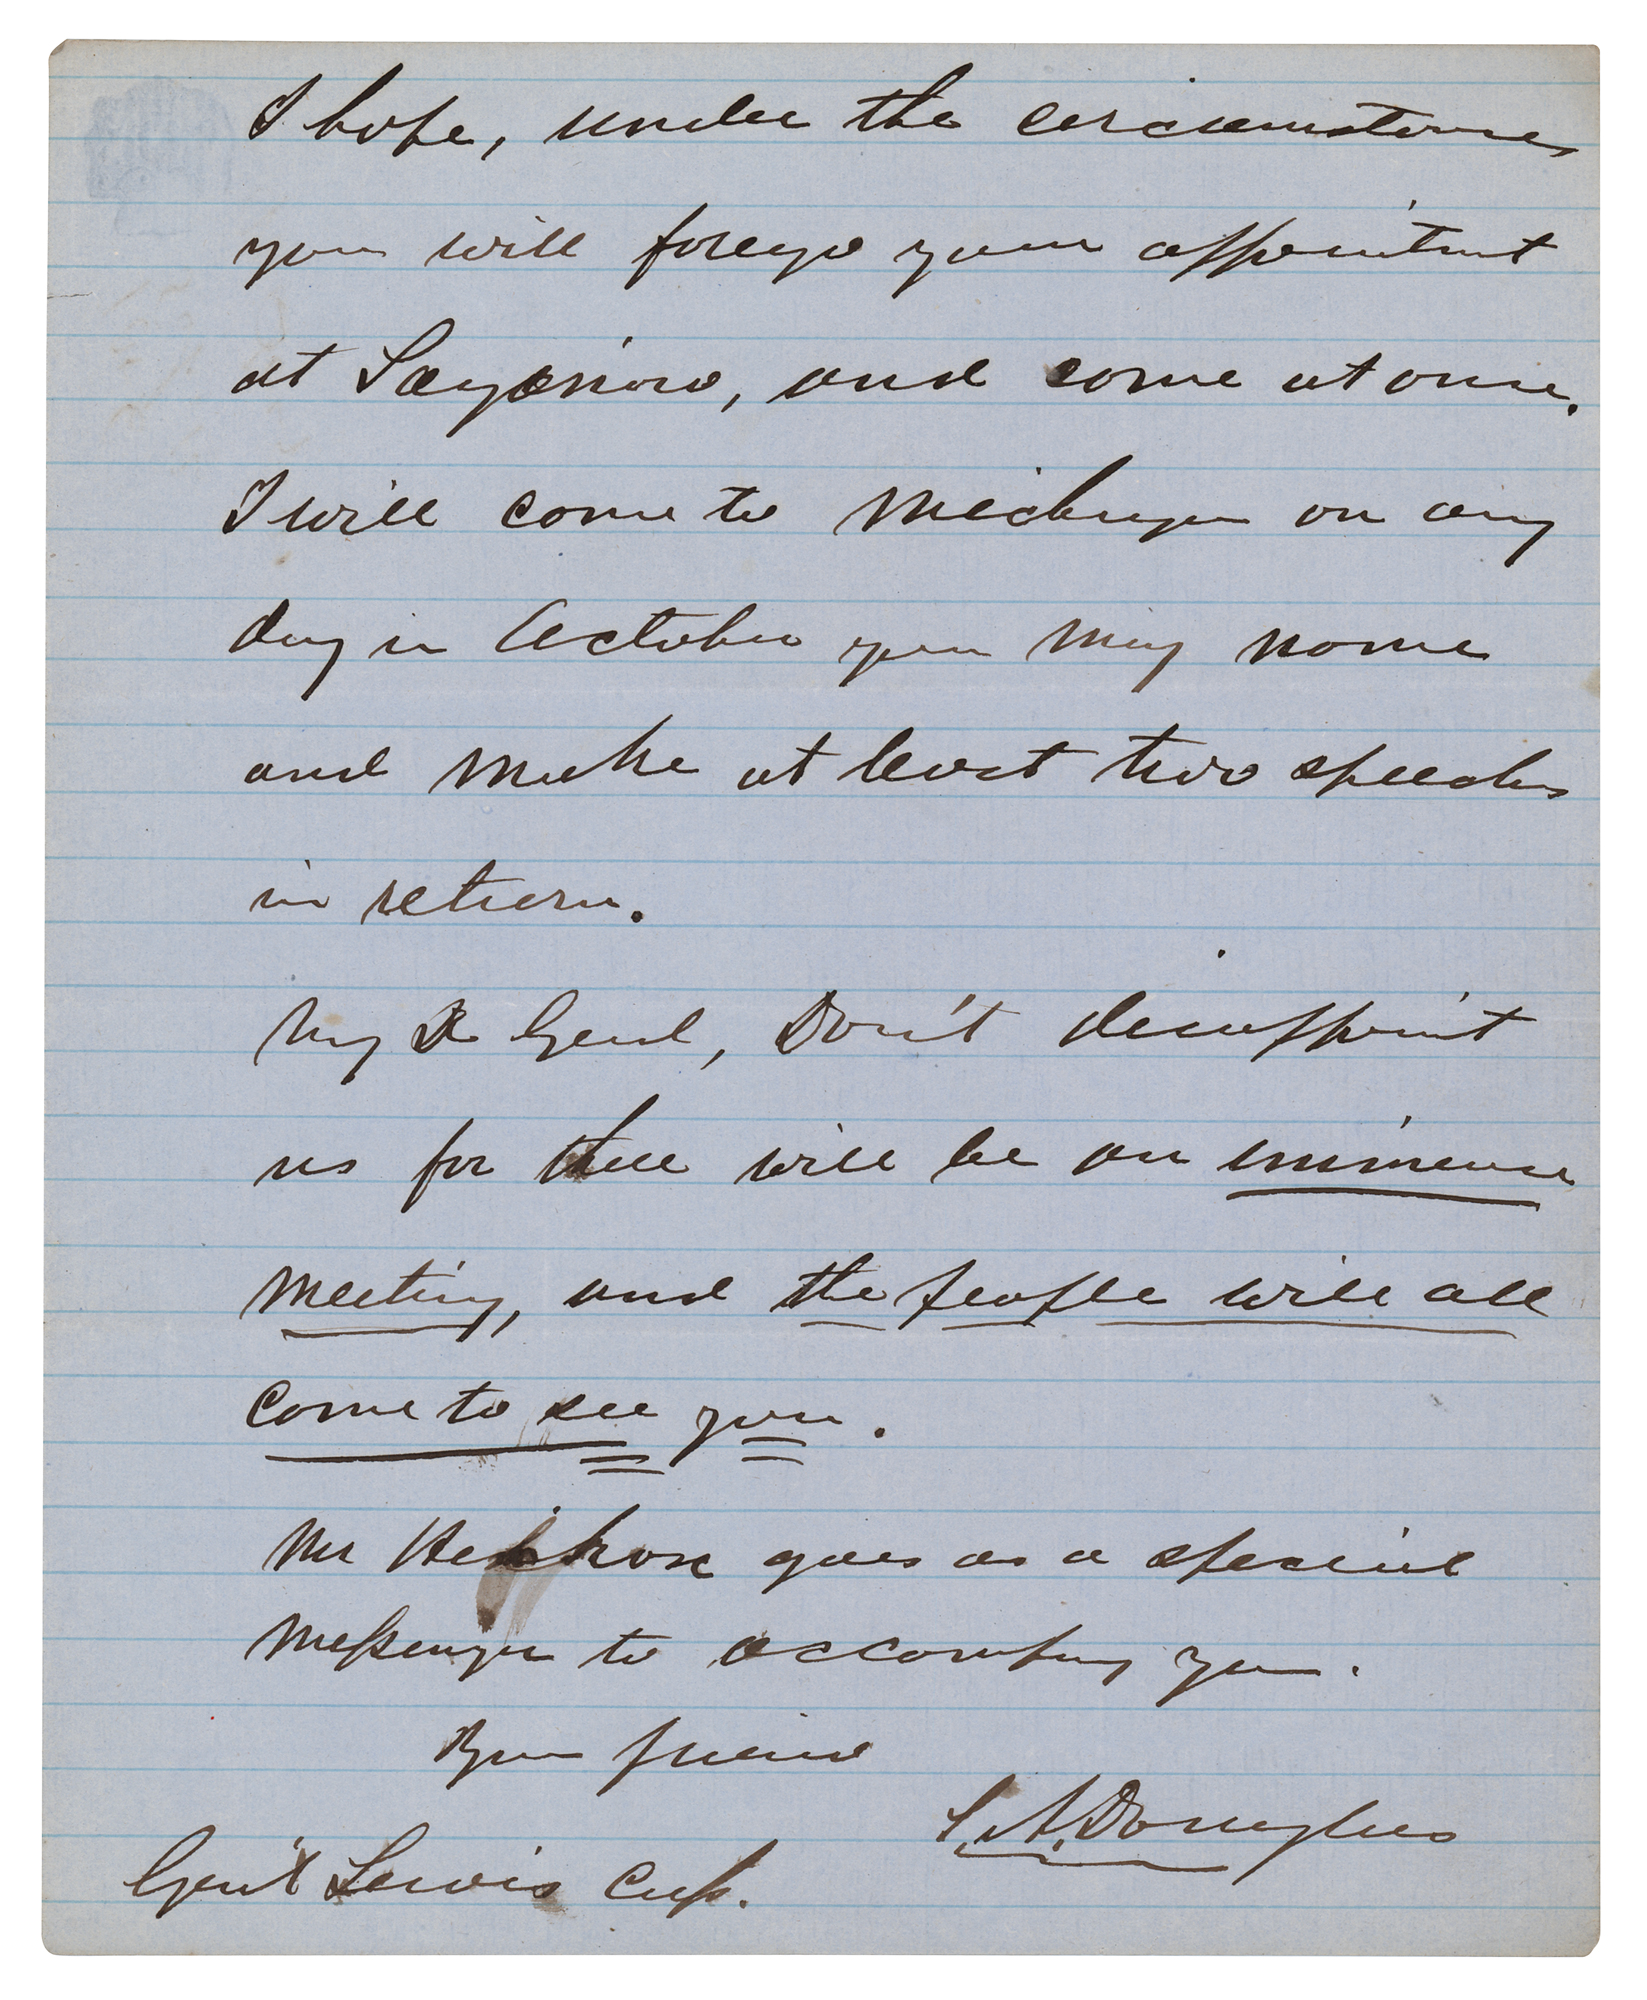 I hope, under the circumstances
you will forego your appointmt
at Saganaw, and come at once.
I will come to Michigan on any
day in October you may name
and make at least two speeches
in return.
My D Genl, Don't disappoint
us for there will be an immense
meeting, and the people will all
come to see you.
Mr Heickox goes as a special
messenger to accompany you.
Your friend
S. A. Douglas
Gen'l Lewis Cass.